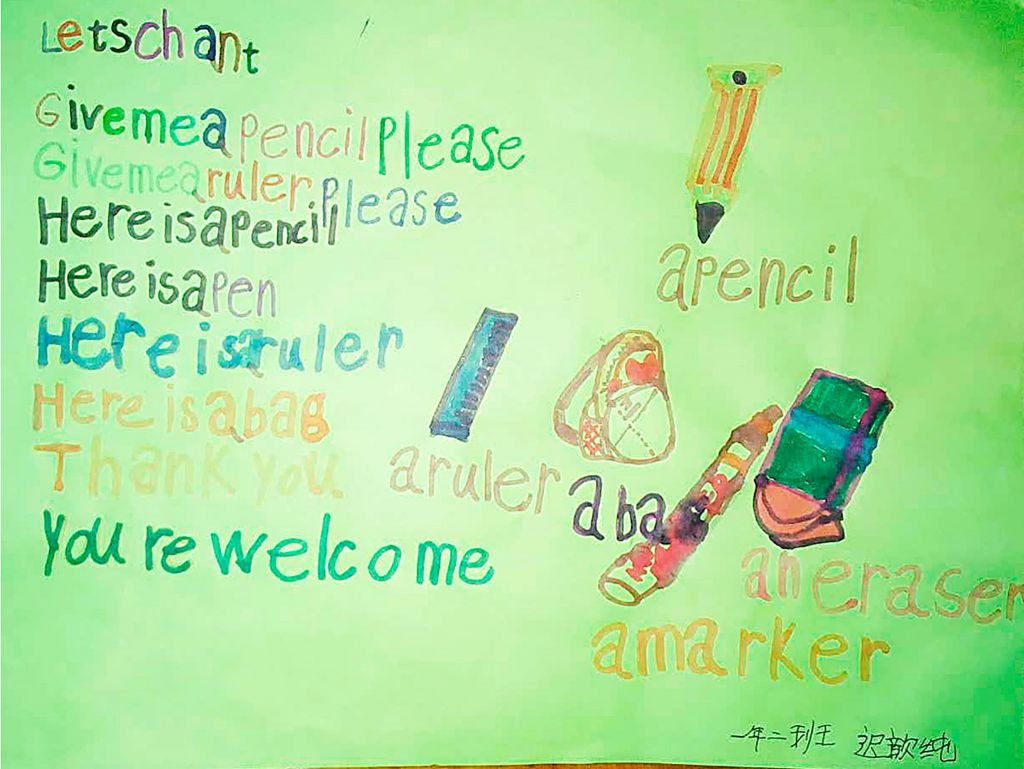 Letschant
Givemea pencil Please
Givemea ruler Please
Here isapencil
Here isapen
Here isaruler
Here isabag
Thank you.
you're welcome
apencil
aruler
aba
aneraser
amarker
一年二班王